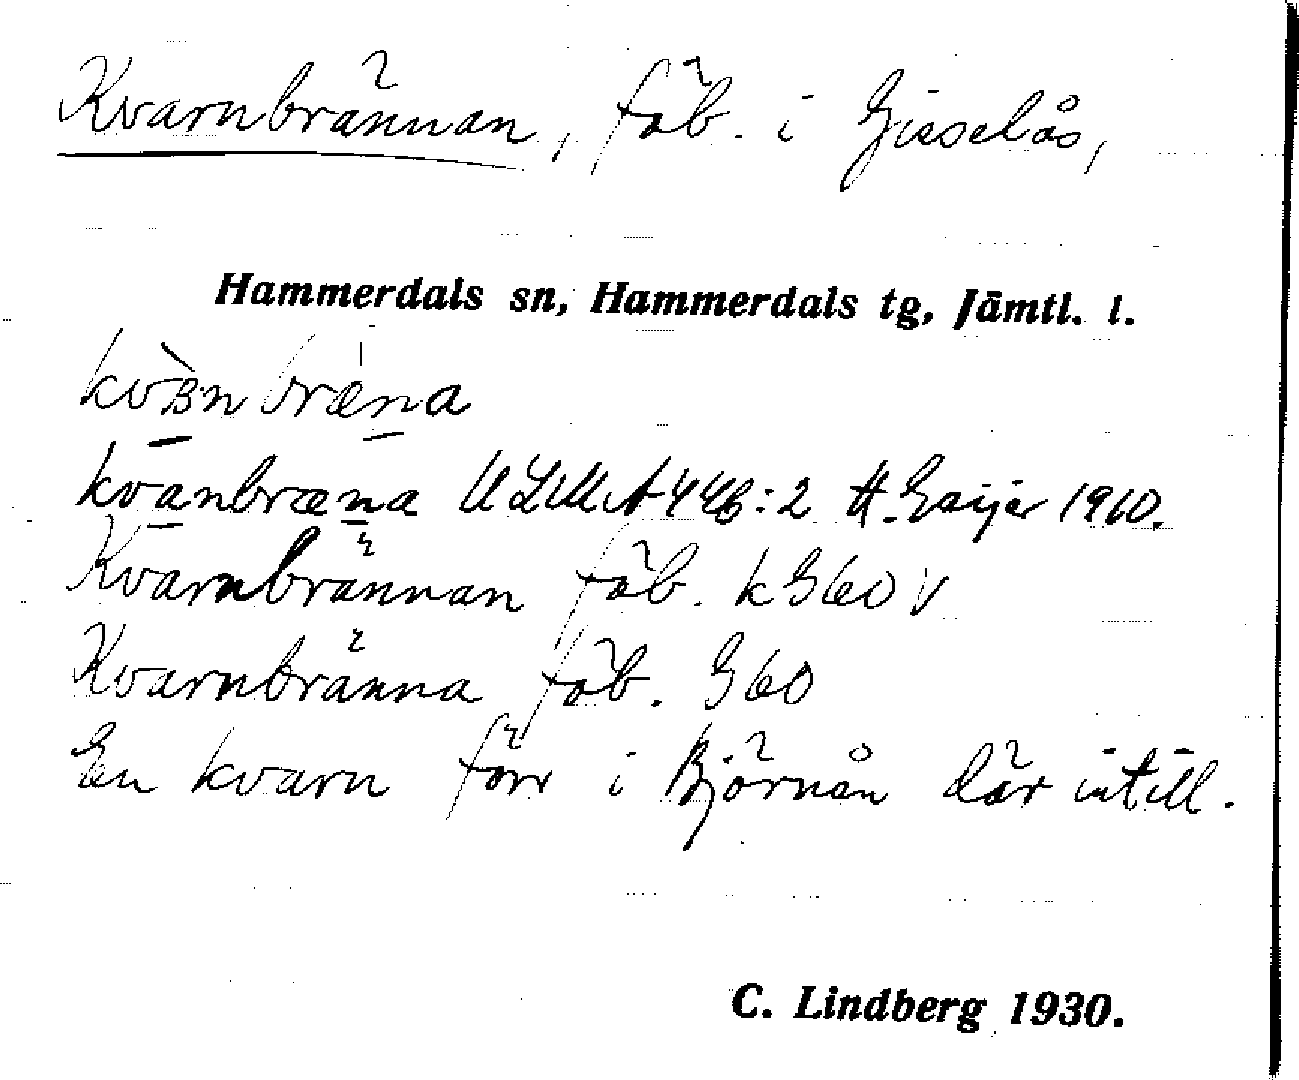 Kvarnbrännan, fäb. i Gisselås,
Hammerdals sn, Hammerdals tg, Jämtl. l.
kvànbræ̍na
kvanbræna ULMA 446:2 H. Geijer 1910.
Kvarnbrännan fäb. k G60 v
Kvarnbränna fäb. G60
En kvarn förr i Björnån där intill.
C. Lindberg 1930.